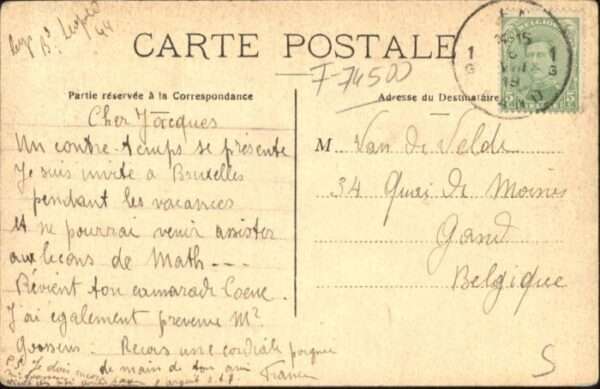 Bd Leopold
44
CARTE POSTALE
F-74500
BELGIQUE
1 G
1 G
15
19
5
5
Partie réservée à la Correspondance
Adresse du Destinataire
Cher Jacques
Un contre-temps se présente
Je suis invité à Bruxelles
pendant les vacances
et ne pourrai venir assister
aux leçons de Math ---
Révient ton camarade
J'ai également prevenu Mr
Goossens. Recois une cordiale poignée
de main de ton ami
P.S. Je dois encore
M Van de Velde
34 Quai de Moines
Gand
Belgique
S